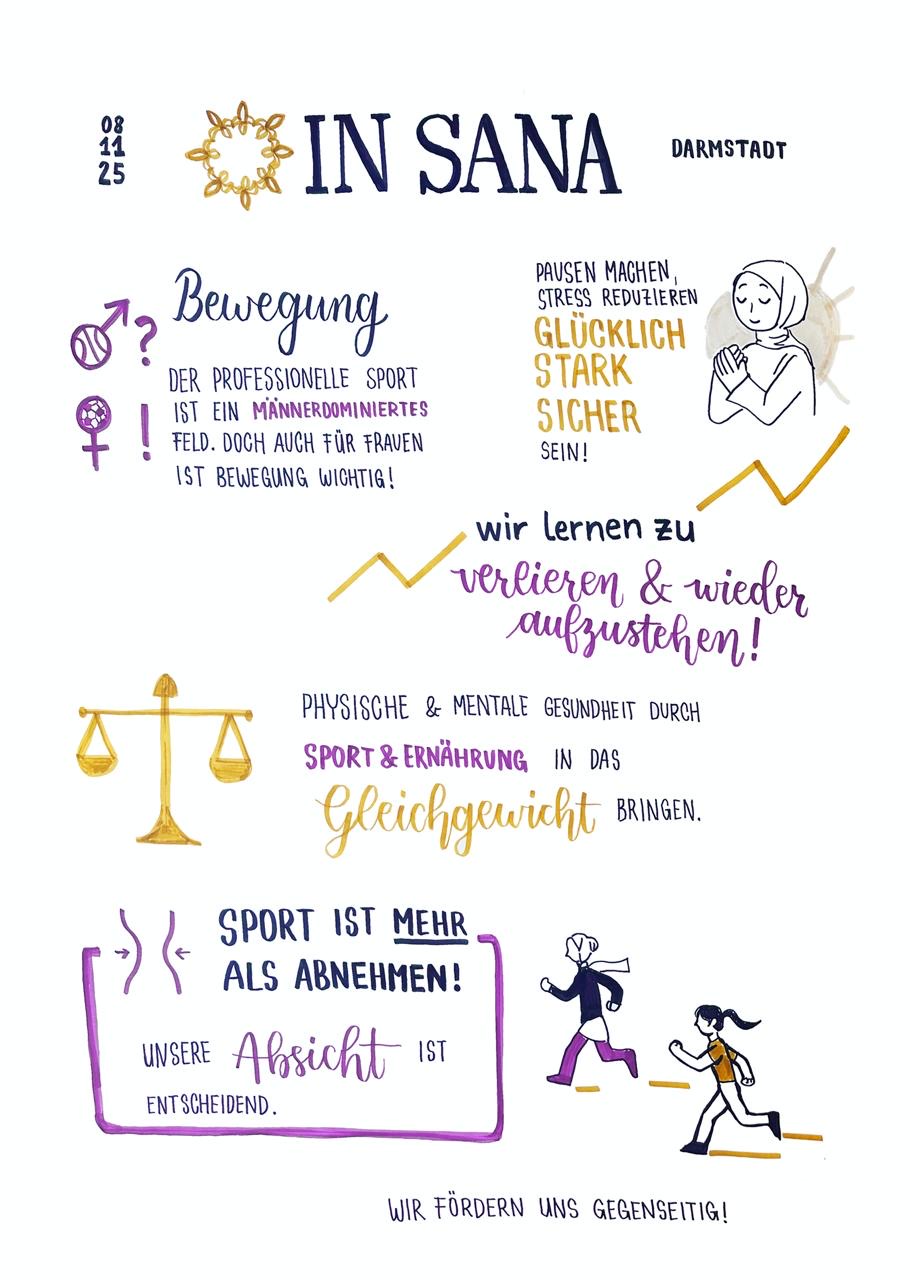 08
11
25
IN SANA
DARMSTADT
Bewegung
DER PROFESSIONELLE SPORT
IST EIN MÄNNERDOMINIERTES
FELD. DOCH AUCH FÜR FRAUEN
IST BEWEGUNG WICHTIG!
?
!
PAUSEN MACHEN,
STRESS REDUZIEREN
GLÜCKLICH
STARK
SICHER
SEIN!
wir lernen zu
verlieren & wieder
aufzustehen!
PHYSISCHE & MENTALE GESUNDHEIT DURCH
SPORT & ERNÄHRUNG IN DAS
Gleichgewicht BRINGEN.
SPORT IST MEHR
ALS ABNEHMEN!
UNSERE Absicht IST
ENTSCHEIDEND.
WIR FÖRDERN UNS GEGENSEITIG!